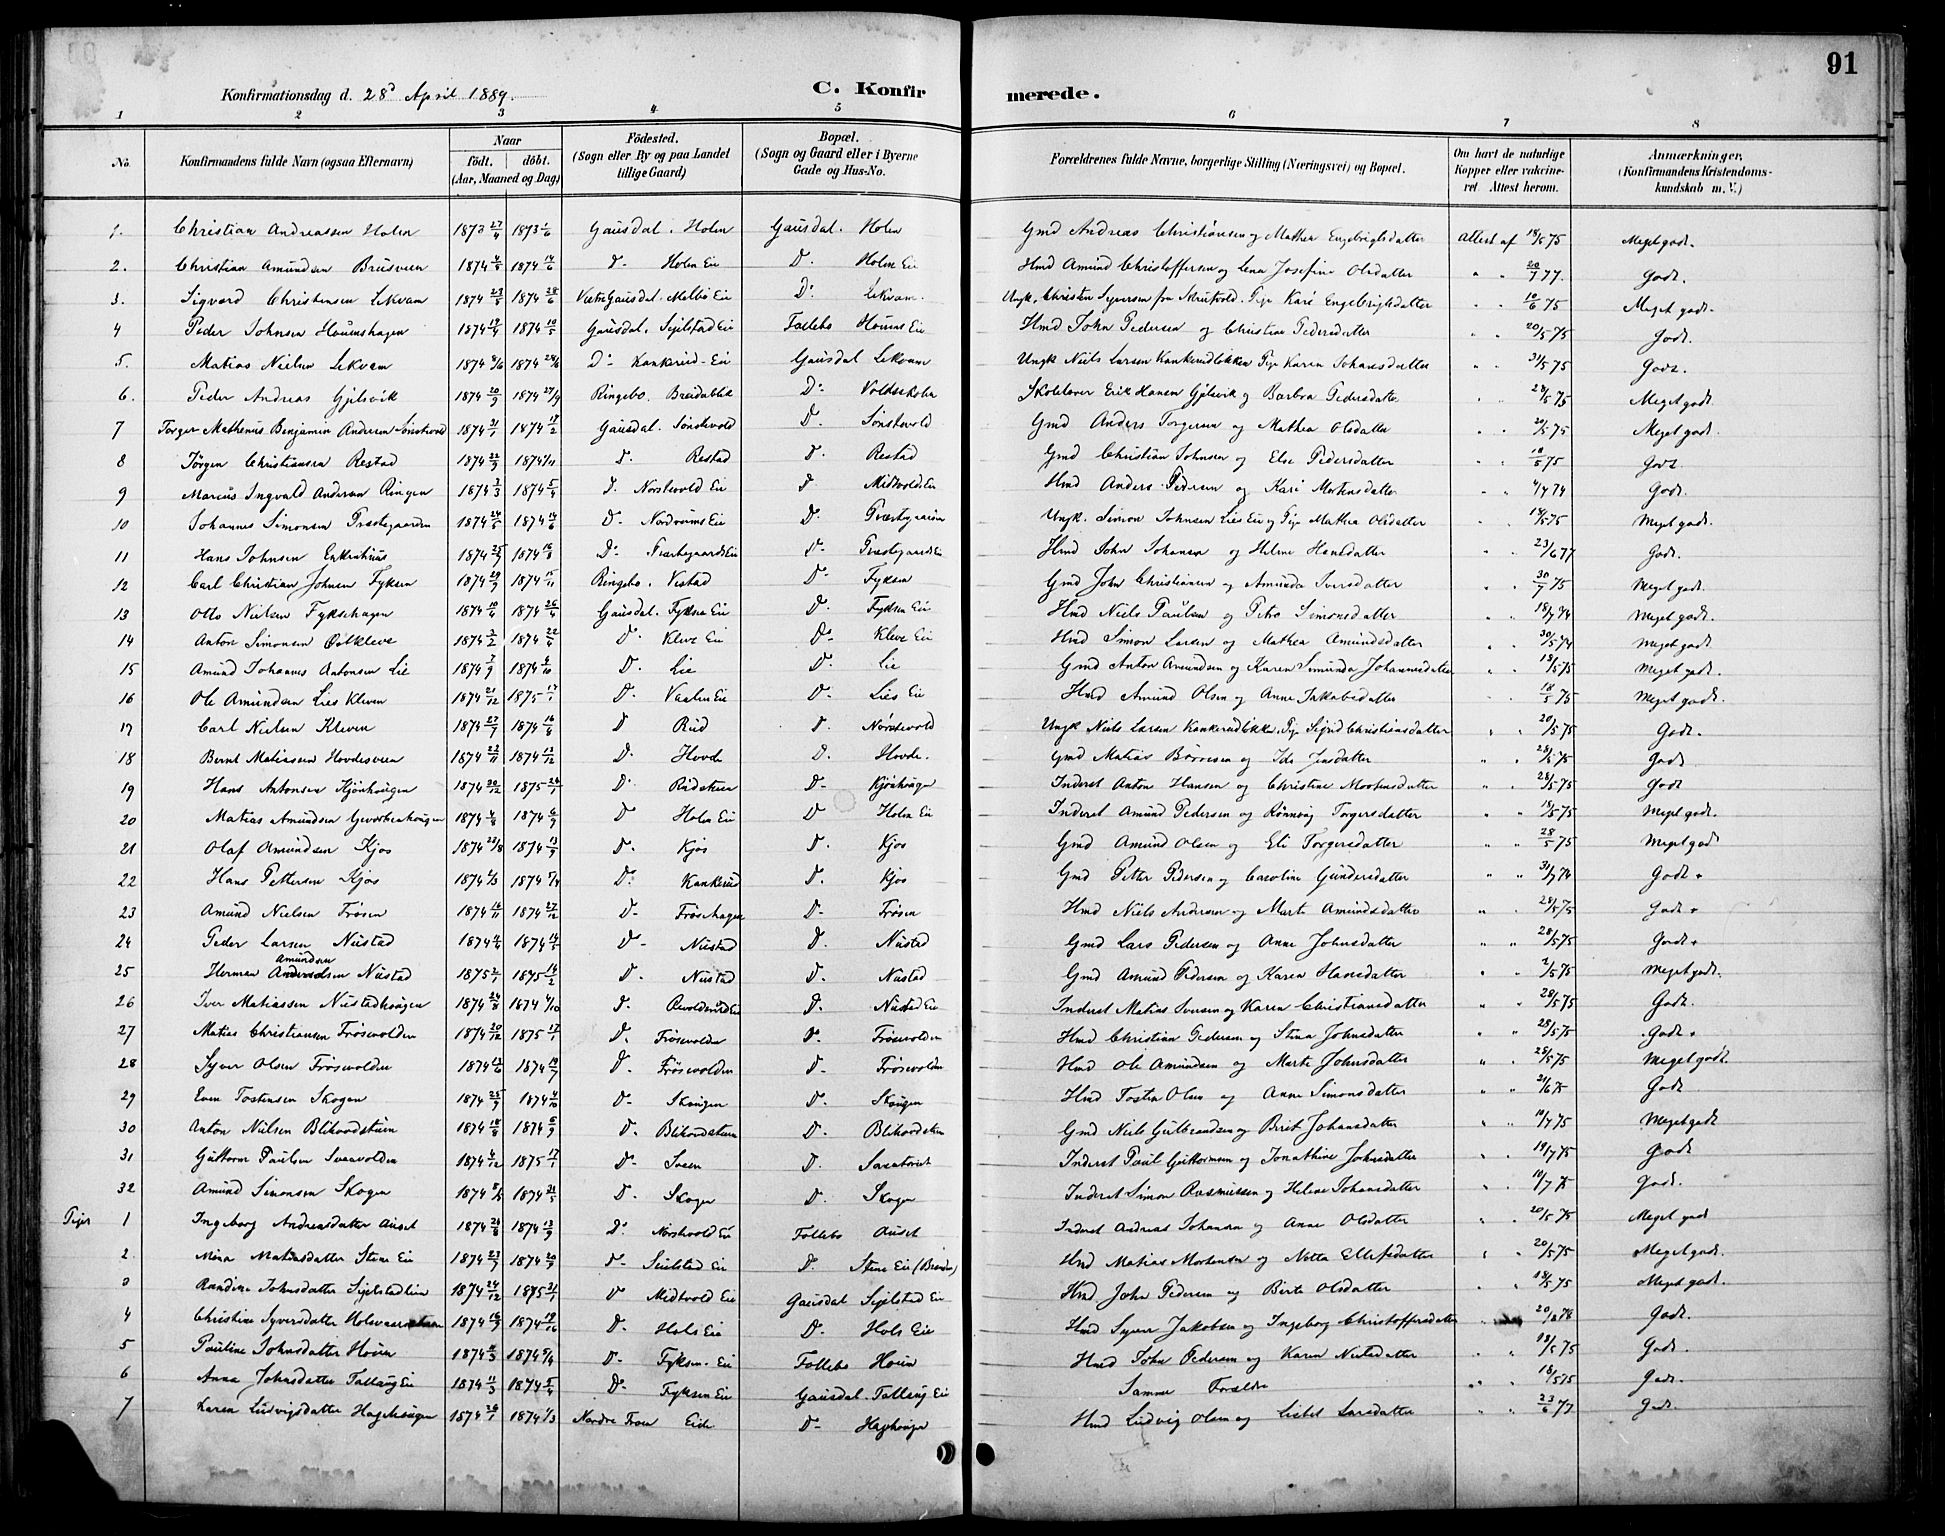 91
Konfirmationsdag d. 28d April 1889. C. Konfirmerede.
1 2 3 4 5 6 7 8
No. Konfirmandens fulde Navn (ogsaa Efternavn) Naar födt. döbt. (Aar, Maaned og Dag) Födested. (Sogn eller By og paa Landet tillige Gaard) Bopæl. (Sogn og Gaard eller i Byerne Gade og Hus-No. Forældrenes fulde Navne, borgerlige Stilling (Næringsvei) og Bopæl. Om havt de naturlige Kopper eller vakcineret. Attest herom. Anmærkninger. (Konfirmandens Kristendomskundskab m. V.)
1. Christian Andreassen Holen 1873 27/4 1873 1/6 Gausdal. Holen Gausdal. Holen Gmd Andreas Christiansen og Mathea Engebrigtsdatter Attest af 18/5 75 Meget godt.
2. Christian Amundsen Brusveen 1874 4/5 1874 14/6 D. Holen Eie D. Holm Eie Hmd Amund Christoffersen og Lena Josefine Olsdatter " " 20/7 77. Godt.
3. Sigvard Christensen Lekvam 1874 23/5 1874 28/6 VestreGausdal. Melbö Eie D: Lekvam. Ungk. Christen Syversen fra Pige Kari Engebrigtsdatter " " 10/6 75 Meget godt.
4 Peder Johnsen Houmshagen 1874 19/4 1874 10/5 Gausdal. Sejelstad Eie Follebo Houms Eie Hmd John Pedersen og Christine Pedersdatter " " 20/5 75 Godt.
5. Matias Nielsen Lekvam 1874 1874 D: Kankerud-Eie Gausdal Lekvam Ungk Niels Larsen Kankerudlökken Pige Karen Johansdatter " " 31/5 75 Godt.
6. Peder Andreas Gjelsvik 1874 20/9 1874 27/9 Ringebo. Breidablik D: Voldsskolen Skolelærer Erik Hansen Gjelsvik og Barbra Pedersdatter " " 28/5 75 Meget godt.
7 Torger Mathenus Benjamin Andersen Sönstevold 1874 31/1 1874 Gausdal. Sönstevold D. Sönstevold Gmd Anders Torgersen og Mathea Olsdatter " " 20/5 75 Meget godt.
8 Jörgen Christiansen Restad 1874 22/9 1874 1/11 D. Restad D. Restad Gmd Christian Johnsen og Else Pedersdatter " " 18/5 75 Godt.
9 Marius Ingvald Andersen Ringen 1874 3/3 1874 5/4 D. Norstevold Eie D Midtvold Eie Hmd Anders Pedersen og Kari Mortensdatter " " 4/7 74 Godt.
10 Johannes Simonsen Præstegaarden 1874 24/5 1874 14/6 D- Nordrums Eie D. Præstegaarden Ungk. Simon Johnsen Lies Eie og Pige Mathea Olsdatter " " 18/5 75 Meget godt.
11 Hans Johnsen Enkeshuus 1874 1874 16/8 D: Præstegaards Eie D- Præstegaards Eie Hmd John Johansen og Helene Hansdatter " " 23/6 77 Godt.
12 Carl Christian Johnsen Fyksen 1874 29/9 1874 15/11 Ringebo. Vestad D- Fyksen Gmd John Christiansen og Amunda Iversdatter " " 30/7 75 Meget godt.
13 Otto Nielsen Fykshagen 1874 10/4 1874 26/4 Gausdal. Fyksen Eie D. Fyksen Eie Hmd Niels Paulsen og Petra Simonsdatter " " 18/7 74 Meget godt.
14 Anton Simonsen 1874 3/2 1874 22/4 D. Kleve Eie D- Kleve Eie Hmd Simon Larsen og Mathea Amundsdatter " " 30/5 74 Meget godt
15 Amund Johannes Antonsen Lie 1874 7/9 1874 4/10 D. Lie D. Lie Gmd Anton Amundsen og Karen Simunda Johannesdatter " " 18/5 75 Meget godt.
16 Ole Amundsen Lies Kleven 1874 21/12 1875 17/1 D. Vaalen Eie D- Lies Eie Hmd Amund Olsen og Anne Jakobsdatter " " 18/5 75 Meget godt.
17 Carl Nielsen Kleven 1874 27/7 1874 16/8 D Rud D. Nörstevold Ungk Niels Larsen Kankerudlökken, Pige Sigrid Christiansdatter " " 20/5 75 Godt.
18 Bernt Matiassen Hovdesveen 1874 22/11 1874 13/12 D. Hovde D. Hovde. Gmd Matias Börresen og Ide Jensdatter " " 28/5 75 Godt
19 Hans Antonsen Kjönhougen 1874 30/12 1875 24/1 D: Rudsteien D- Kjönhougen Inderst Anton Hansen og Christine Mortensdatter " " 28/5 75 Godt
20 Matias Amundsen 1874 4/8 1874 6/9 D Holen Eie D Holen Eie Inderst Amund Pedersen og Rönnaug Torgersdatter " " 18/5 75 Meget godt.
21 Olaf Amundsen Kjos 1874 23/8 1874 13/9 D. Kjos D. Kjos Gmd Amund Olsen og Eli Torgersdatter " " 28/5 75 Meget godt
22 Hans Pettersen Kjos 1874 1/3 1874 5/4 D: Kankerud D. Kjos Gmd Petter Pedersen og Caroline Gundersdatter " " 31/7 74 Godt.
23 Amund Nielsen Frösen 1874 16/11 1874 27/12 D- Fröshagen D- Frösen Hmd Niels Andersen og Marte Amundsdatter " " 28/5 75 Godt.
24 Peder Larsen Nustad 1874 1874 14/5 D- Nustad D. Nustad Gmd Lars Pedersen og Anne Johnsdatter " " 28/5 75 Godt.
25 Herman Amundsen Nustad 1875 2/1 1875 14/2 D- Nustad D. Nustad Gmd Amund Pedersen og Karen Hansdatter " " 2/5 75 Meget godt.
26 Iver Matiassen Nustadhougen 1874 24/8 1874 4/10 D. D. Nustad Eie Inderst Matias Iversen og Karen Christiansdatter " " 28/5 75 Godt.
27 Matias Christiansen Frösvolden 1874 20/12 1875 17/1 D. Frösvolden D. Frösvolden Hmd Christian Pedersen og Stina Johnsdatter " " 28/5 75 Godt.
28 Syver Olsen Frösvolden 1874 13/6 1874 19/7 D. Frösvolden D- Frösvolden Hmd Ole Amundsen og Marte Johnsdatter " " 28/5 75 Meget godt.
29 Even Tostensen Skogen 1874 25/9 1874 4/10 D- Skougen D. Skougen Hmd Tosten Olsen og Anne Simonsdatter " " 21/6 75 Godt
30 Anton Nielsen Blikvodsteien 1874 18/8 1874 6/9 D. Blikvodsteien D. Blikvodsteien Gmd Niels Gulbrandsen og Berit Johansdatter " " 19/7 75 Meget godt
31 Guttorm Paulsen Svaavolden 1874 4/12 1875 17/1 D- Sveen D. Sanatoriet Inderst Paul Guttormsen og Jonathine Johnsdatter " " 19/7 75 Godt
32 Amund Simonsen Skogen 1874 1874 31/5 D. Skogen D. Skogen Inderst Simon Rasmussen og Helene Johansdatter " " 19/7 75 Godt.
Piger 1 Ingeborg Andreasdatter Auset 1874 24/8 1874 13/9 D: Norstvold Eie Follebo Auset Inderst Andreas Johansen og Anne Olsdatter " " 20/5 75 Meget godt
2. Mina Matiasdatter Stene Eie 1874 27/7 1874 20/9 D- Seielstad Eie D. Stene Eie (Brenden) Hmd Matias Mortensen og Netta Ellefsdatter " " 20/5 75 Meget godt.
3 Randine Johnsdatter Sejelstadlien 1874 24/12 1875 31/1 D Midtvold Eie Gausdal Sejelstad Eie Hmd John Pedersen og Berte Olsdatter " " 18/5 75 Meget godt.
4 Christine Syversdatter 1874 16/9 1874 D. Hols Eie D. Hols Eie Hmd Syver Jakobsen og Ingeborg Christoffersdatter " 20/8 76 Godt.
5 Pauline Johnsdatter Houm 1874 11/3 1874 5/4 D- Fyksen. Eie Follebo Houm Hmd John Pedersen og Karen " " 18/5 75 Godt.
6 Anna Johnsdatter Tallaug Eie 1874 11/3 1874 5/4 D- Fyksen Eie Gausdal. Tallaug Eie Samme Forældre " " 18/5 75 Godt.
7 Karen Ludvigsdatter Hagehougen 1874 28/1 1874 1/3 Nordre Fron Eide D- Haghougen Hmd Ludvig Olsen og Lisbet Larsdatter " " 23/6 77 Godt.